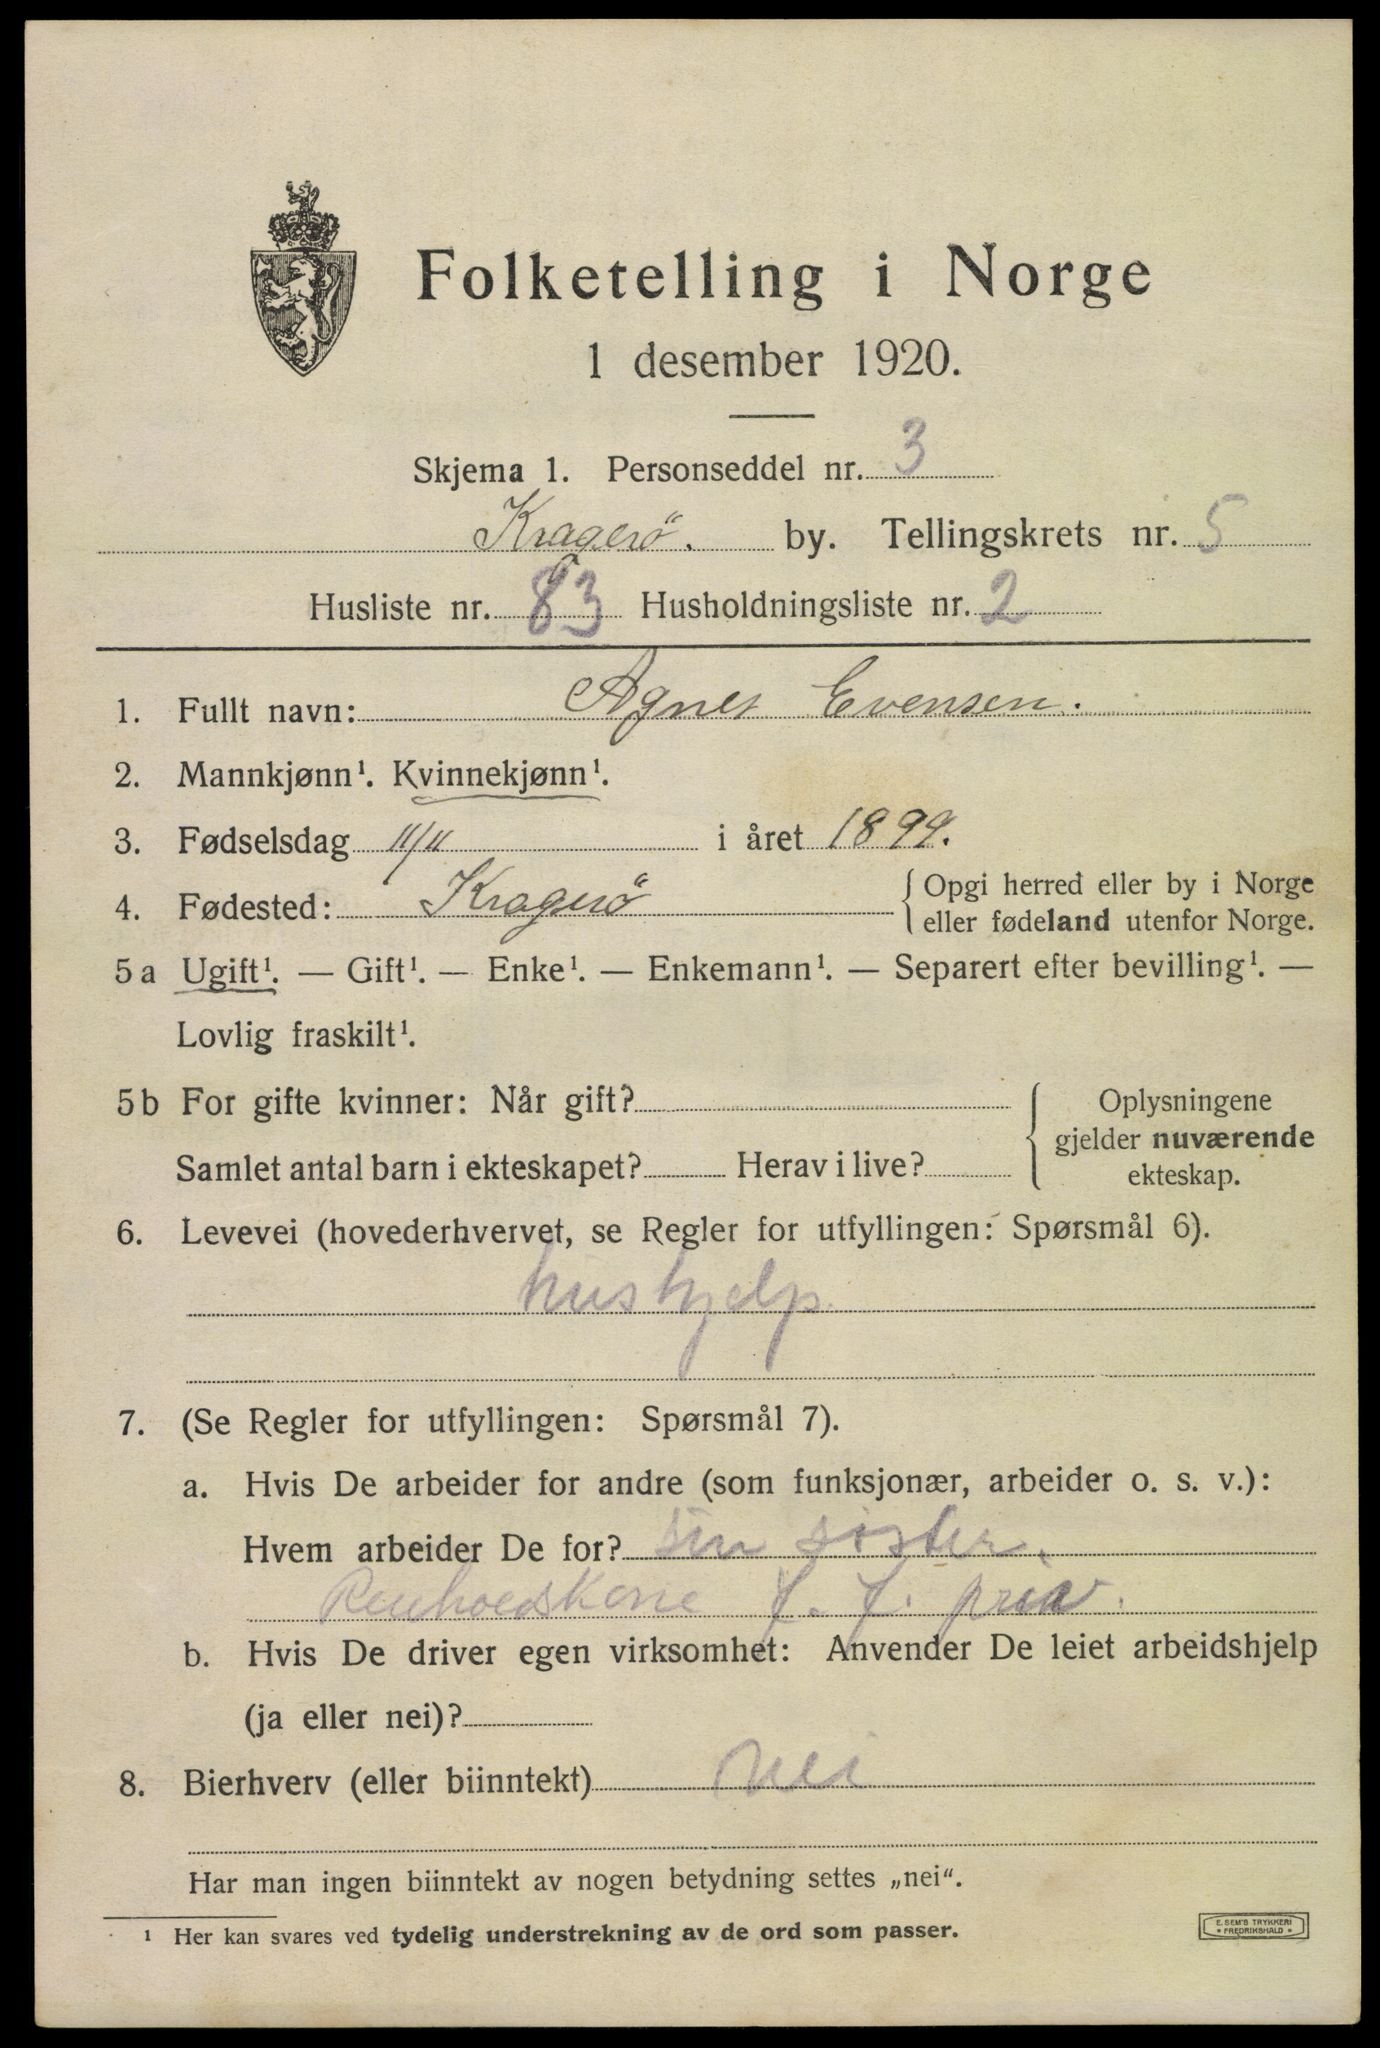 Folketelling i Norge
1 desember 1920.
Skjema 1. Personseddel nr. 3
Kragerö. by. Tellingskrets nr. 5
Husliste nr. 83 Husholdningsliste nr. 2
1. Fullt navn: Agnes Evensen.
2. Mannkjønn¹. Kvinnekjønn¹.
3. Fødselsdag 11/11 i året 1899.
4. Fødested: Kragerö { Opgi herred eller by i Norge
eller fødeland utenfor Norge.
5 a Ugift¹. — Gift¹. — Enke¹. — Enkemann¹. — Separert efter bevilling¹. —
Lovlig fraskilt¹.
5 b For gifte kvinner: Når gift?
Samlet antal barn i ekteskapet? Herav i live?
{ Oplysningene
gjelder nuværende
ekteskap.
6. Levevei (hovederhvervet, se Regler for utfyllingen: Spørsmål 6).
hushjelp.
7. (Se Regler for utfyllingen: Spørsmål 7).
a. Hvis De arbeider for andre (som funksjonær, arbeider o. s. v.):
Hvem arbeider De for? sin sister.
Renholdskone f. f. priv.
b. Hvis De driver egen virksomhet: Anvender De leiet arbeidshjelp
(ja eller nei)?
8. Bierhverv (eller biinntekt) Nei
Har man ingen biinntekt av nogen betydning settes „nei“.
¹ Her kan svares ved tydelig understrekning av de ord som passer.
E. SEM'S TRYKKERI
* FREDRIKSHALD *